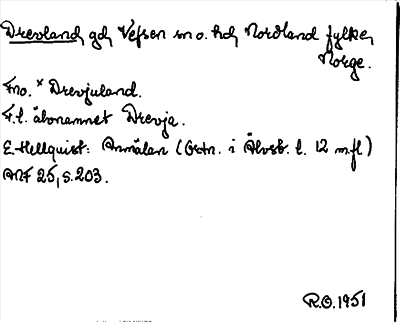 Drevland, gd, Vefsen sn o. hd, Nordland fylke,
Norge.
Fno. * Drevjuland.
F.l. älvnamnet Drevja.
E. Hellquist: Anmälan (Ortn. i Älvsb. l. 12 m.fl)
ANF 25, s. 203.
R.O. 1951